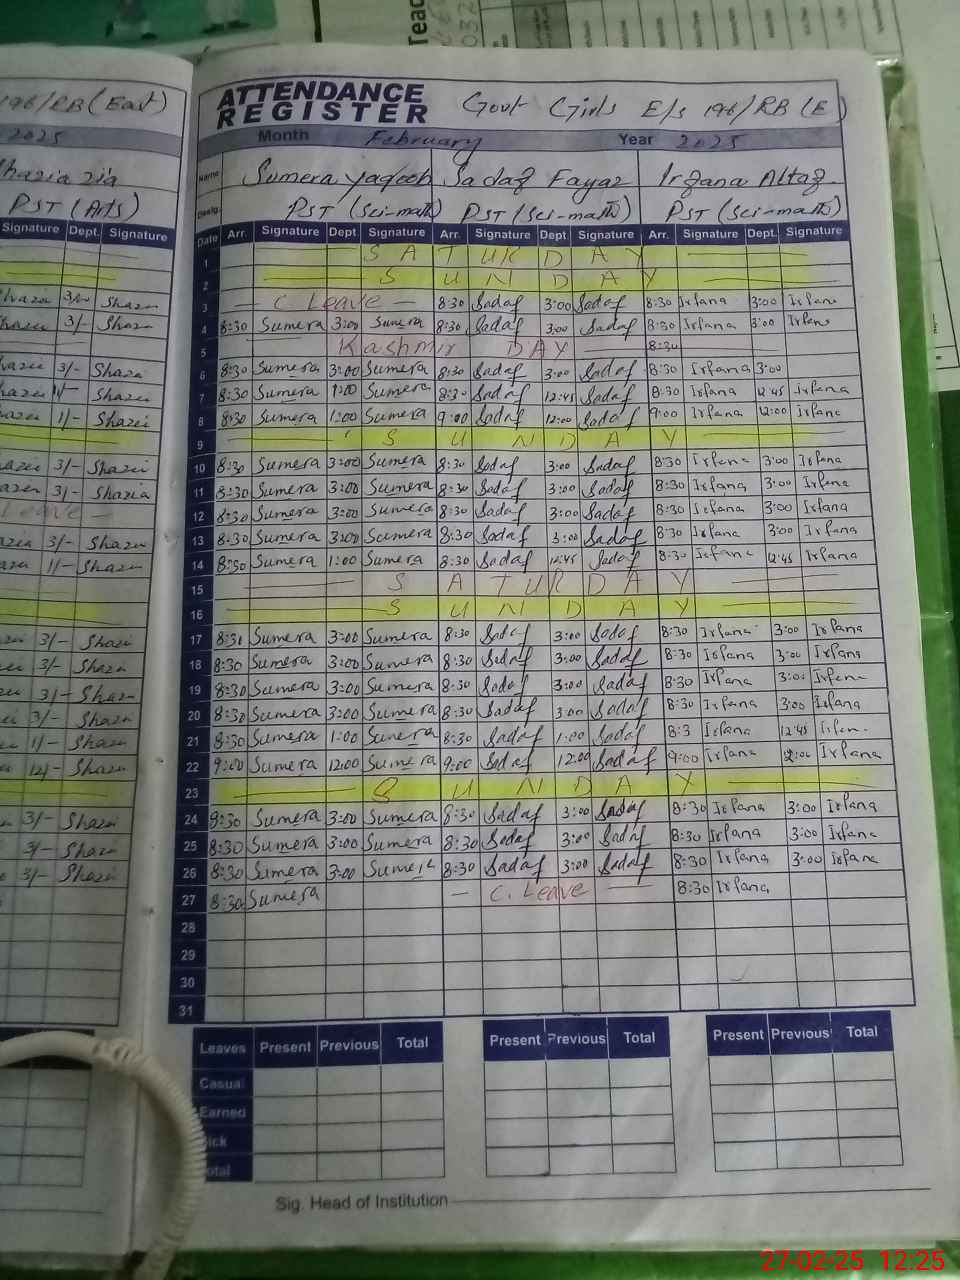 Teac
196/RB (East)
2025
Shazia zia
PST (Arts)
Signature Dept. Signature
3/- Shazia
3/- Shazia
3/- Shazia
Shazia
1/- Shazia
3/- Shazia
3/- Shazia
Leave -
3/- Shazia
1/- Shazia
3/- Shazia
3/- Shazia
3/- Shazia
3/- Shazia
1/- Shazia
Shazia
3/- Shazia
3/- Shazia
3/- Shazia
ATTENDANCE REGISTER Govt Girls E/s 196/RB (E)
Month February Year 2025
Name Sumera Yaqoob Sadaf Fayaz Irfana Altaf
Desig. PST (Sci-math) PST (Sci-math) PST (Sci-math)
Date Arr. Signature Dept. Signature Arr. Signature Dept Signature Arr. Signature Dept. Signature
1 SATURDAY
2 SUNDAY
3 - C. Leave - 8:30 Sadaf 3:00 Sadaf 8:30 Irfana 3:00 Irfana
4 8:30 Sumera 3:00 Sumera 8:30 Sadaf 3:00 Sadaf 8:30 Irfana 3:00 Irfana
5 Kashmir DAY 8:30
6 8:30 Sumera 3:00 Sumera 8:30 Sadaf 3:00 Sadaf 8:30 Irfana 3:00
7 8:30 Sumera 1:00 Sumera 8:30 Sadaf 12:45 Sadaf 8:30 Irfana 12:45 Irfana
8 8:30 Sumera 1:00 Sumera 9:00 Sadaf 12:00 Sadaf 9:00 Irfana 12:00 Irfana
9 SUNDAY
10 8:30 Sumera 3:00 Sumera 8:30 Sadaf 3:00 Sadaf 8:30 Irfana 3:00 Irfana
11 8:30 Sumera 3:00 Sumera 8:30 Sadaf 3:00 Sadaf 8:30 Irfana 3:00 Irfana
12 8:30 Sumera 3:00 Sumera 8:30 Sadaf 3:00 Sadaf 8:30 Irfana 3:00 Irfana
13 8:30 Sumera 3:00 Sumera 8:30 Sadaf 3:00 Sadaf 8:30 Irfana 3:00 Irfana
14 8:30 Sumera 1:00 Sumera 8:30 Sadaf 12:45 Sadaf 8:30 Irfana 12:45 Irfana
15 SATURDAY
16 SUNDAY
17 8:30 Sumera 3:00 Sumera 8:30 Sadaf 3:00 Sadaf 8:30 Irfana 3:00 Irfana
18 8:30 Sumera 3:00 Sumera 8:30 Sadaf 3:00 Sadaf 8:30 Irfana 3:00 Irfana
19 8:30 Sumera 3:00 Sumera 8:30 Sadaf 3:00 Sadaf 8:30 Irfana 3:00 Irfana
20 8:30 Sumera 3:00 Sumera 8:30 Sadaf 3:00 Sadaf 8:30 Irfana 3:00 Irfana
21 8:30 Sumera 1:00 Sumera 8:30 Sadaf 1:00 Sadaf 8:3 Irfana 12:45 Irfana
22 9:00 Sumera 12:00 Sumera 9:00 Sadaf 12:00 Sadaf 9:00 Irfana 12:00 Irfana
23 SUNDAY
24 8:30 Sumera 3:00 Sumera 8:30 Sadaf 3:00 Sadaf 8:30 Irfana 3:00 Irfana
25 8:30 Sumera 3:00 Sumera 8:30 Sadaf 3:00 Sadaf 8:30 Irfana 3:00 Irfana
26 8:30 Sumera 3:00 Sumera 8:30 Sadaf 3:00 Sadaf 8:30 Irfana 3:00 Irfana
27 8:30 Sumera - C. Leave - 8:30 Irfana
28
29
30
31
Leaves Present Previous Total Present Previous Total Present Previous Total
Casual
Earned
Sick
Total
Sig. Head of Institution
27-02-25 12:25